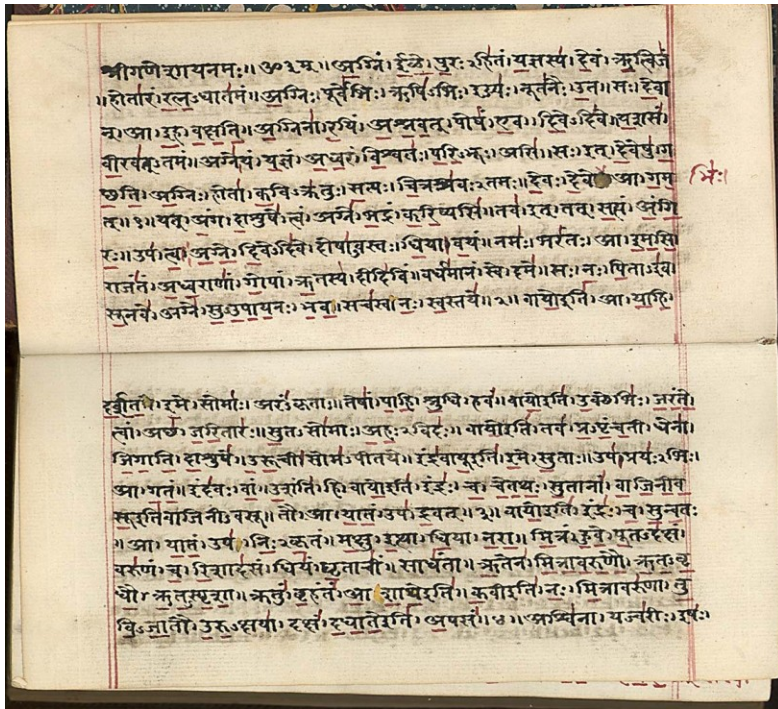 श्रीगणेशायनमः॥ॐ३म्॥अग्निं।ईळे।पुरःऽहितं।यज्ञस्य।देवं।ऋत्विजं
॥होतारं।रत्नऽधातमं॥अग्निः।पूर्वेभिः।ऋषिऽभिः।ईड्यः।नूतनैः।उत॥सः।देवा
न्।आ।इह।वक्षति॥अग्निना।रयिं।अश्नवत्।पोषं।एव।दिवेऽदिवे॥यशसं
वीरवत्ऽतमं॥अग्ने।यं।यज्ञं।अध्वरं।विश्वतः।परिऽभूः।असि॥सः।इत्।देवेषु।ग
च्छति॥अग्निः।होता।कविऽक्रतुः।सत्यः।चित्रश्रवःऽतमः॥देवः।देवे।आ।गम
भिः।
त्॥१॥यत्।अंग।दाशुषे।त्वं।अग्ने।भद्रं।करिष्यसि॥तव।इत्।तत्।सत्यं।अंगि
रः॥उप।त्वा।अग्ने।दिवेऽदिवे।दोषाऽवस्तः।धिया।वयं॥नमः।भरंतः।आ।इमसि
राजंतं।अध्वराणां।गोपां।ऋतस्य।दीदिविं॥वर्धमानं।स्वे।दमे॥सः।नः।पिताऽइव
सूनवे।अग्ने।सुऽउपायनः।भव॥सचस्व।नः।स्वस्तये॥२॥वायोइति।आ।याहि
दर्शत।इमे।सोमाः।अरंऽकृताः॥तेषां।पाहि।श्रुधि।हवं॥वायोइति।उक्थेभिः।जरंते
त्वां।अच्छ।जरितारः॥सुतऽसोमाः।अहःऽविदः॥वायोइति।तव।प्रऽपृंचती।धेना
जिगाति।दाशुषे॥उरूची।सोमऽपीतये॥इंद्रवायूइति।इमे।सुताः॥उप।प्रयःऽभिः।
आ।गतं॥इंदवः।वां।उशंति।हि॥वायोइति।इंद्रः।च।चेतथः।सुतानां।वाजिनीव
सूइतिवाजिनीऽवसू॥तौ।आ।यातं।उप।द्रवत्॥३॥वायोइति।इंद्रः।च।सुन्वतः
॥आ।यातं।उप।निःऽकृतं॥मक्षु।इत्था।धिया।नरा॥मित्रं।हुवे।पूतऽदक्षं।
वरुणं।च।रिशादसं॥धियं।घृताचीं।साधंता॥ऋतेन।मित्रावरुणौ।ऋतऽवृ
धौ।ऋतऽस्पृशा॥क्रतुं।बृहंतं।आशाथेइति॥कवीइति।नः।मित्रावरुणा।तु
विऽजातौ।उरुऽक्षया।दक्षं।दधातेइति।अपसं॥४॥अश्विना।यज्वरीः।इषः।